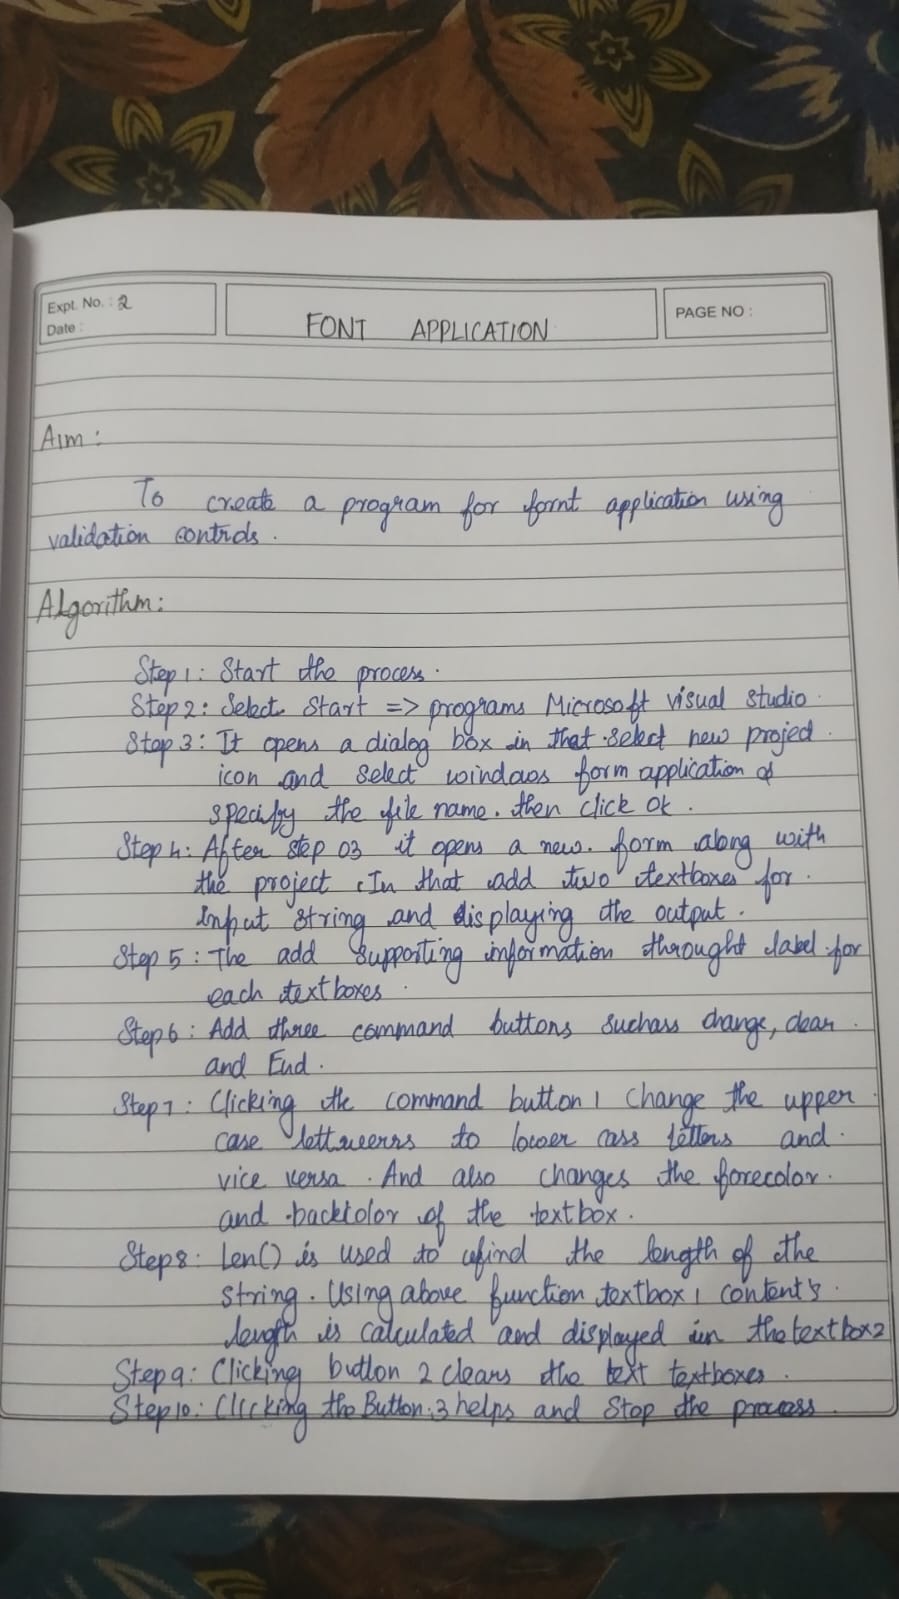 Expt. No. : 2
Date :
FONT APPLICATION
PAGE NO :
Aim :
To create a program for fornt application using
validation controls.
Algorithm :
Step 1 : Start the process.
Step 2 : Select Start => programs Microsoft visual studio.
Step 3 : It opens a dialog box in that select new project
icon and select windows form application &
specify the file name. then click ok.
Step 4 : After step 03 it opens a new. form along with
the project. In that add two textboxes for.
Input string and displaying the output.
Step 5 : The add supporting information throught label for
each textboxes.
Step 6 : Add three command buttons suchass change, clear
and End.
Step 7 : Clicking the command button 1 change the upper
case to lower cass letters and.
vice versa. And also changes the forecolor.
and backcolor of the textbox.
Step 8 : Len() is used to find the length of the
string. Using above function textbox 1 content's
length is calculated and displayed in the textbox2
Step 9 : Clicking button 2 clears the text textboxes.
Step 10 : Clicking the Button.3 helps and Stop the process